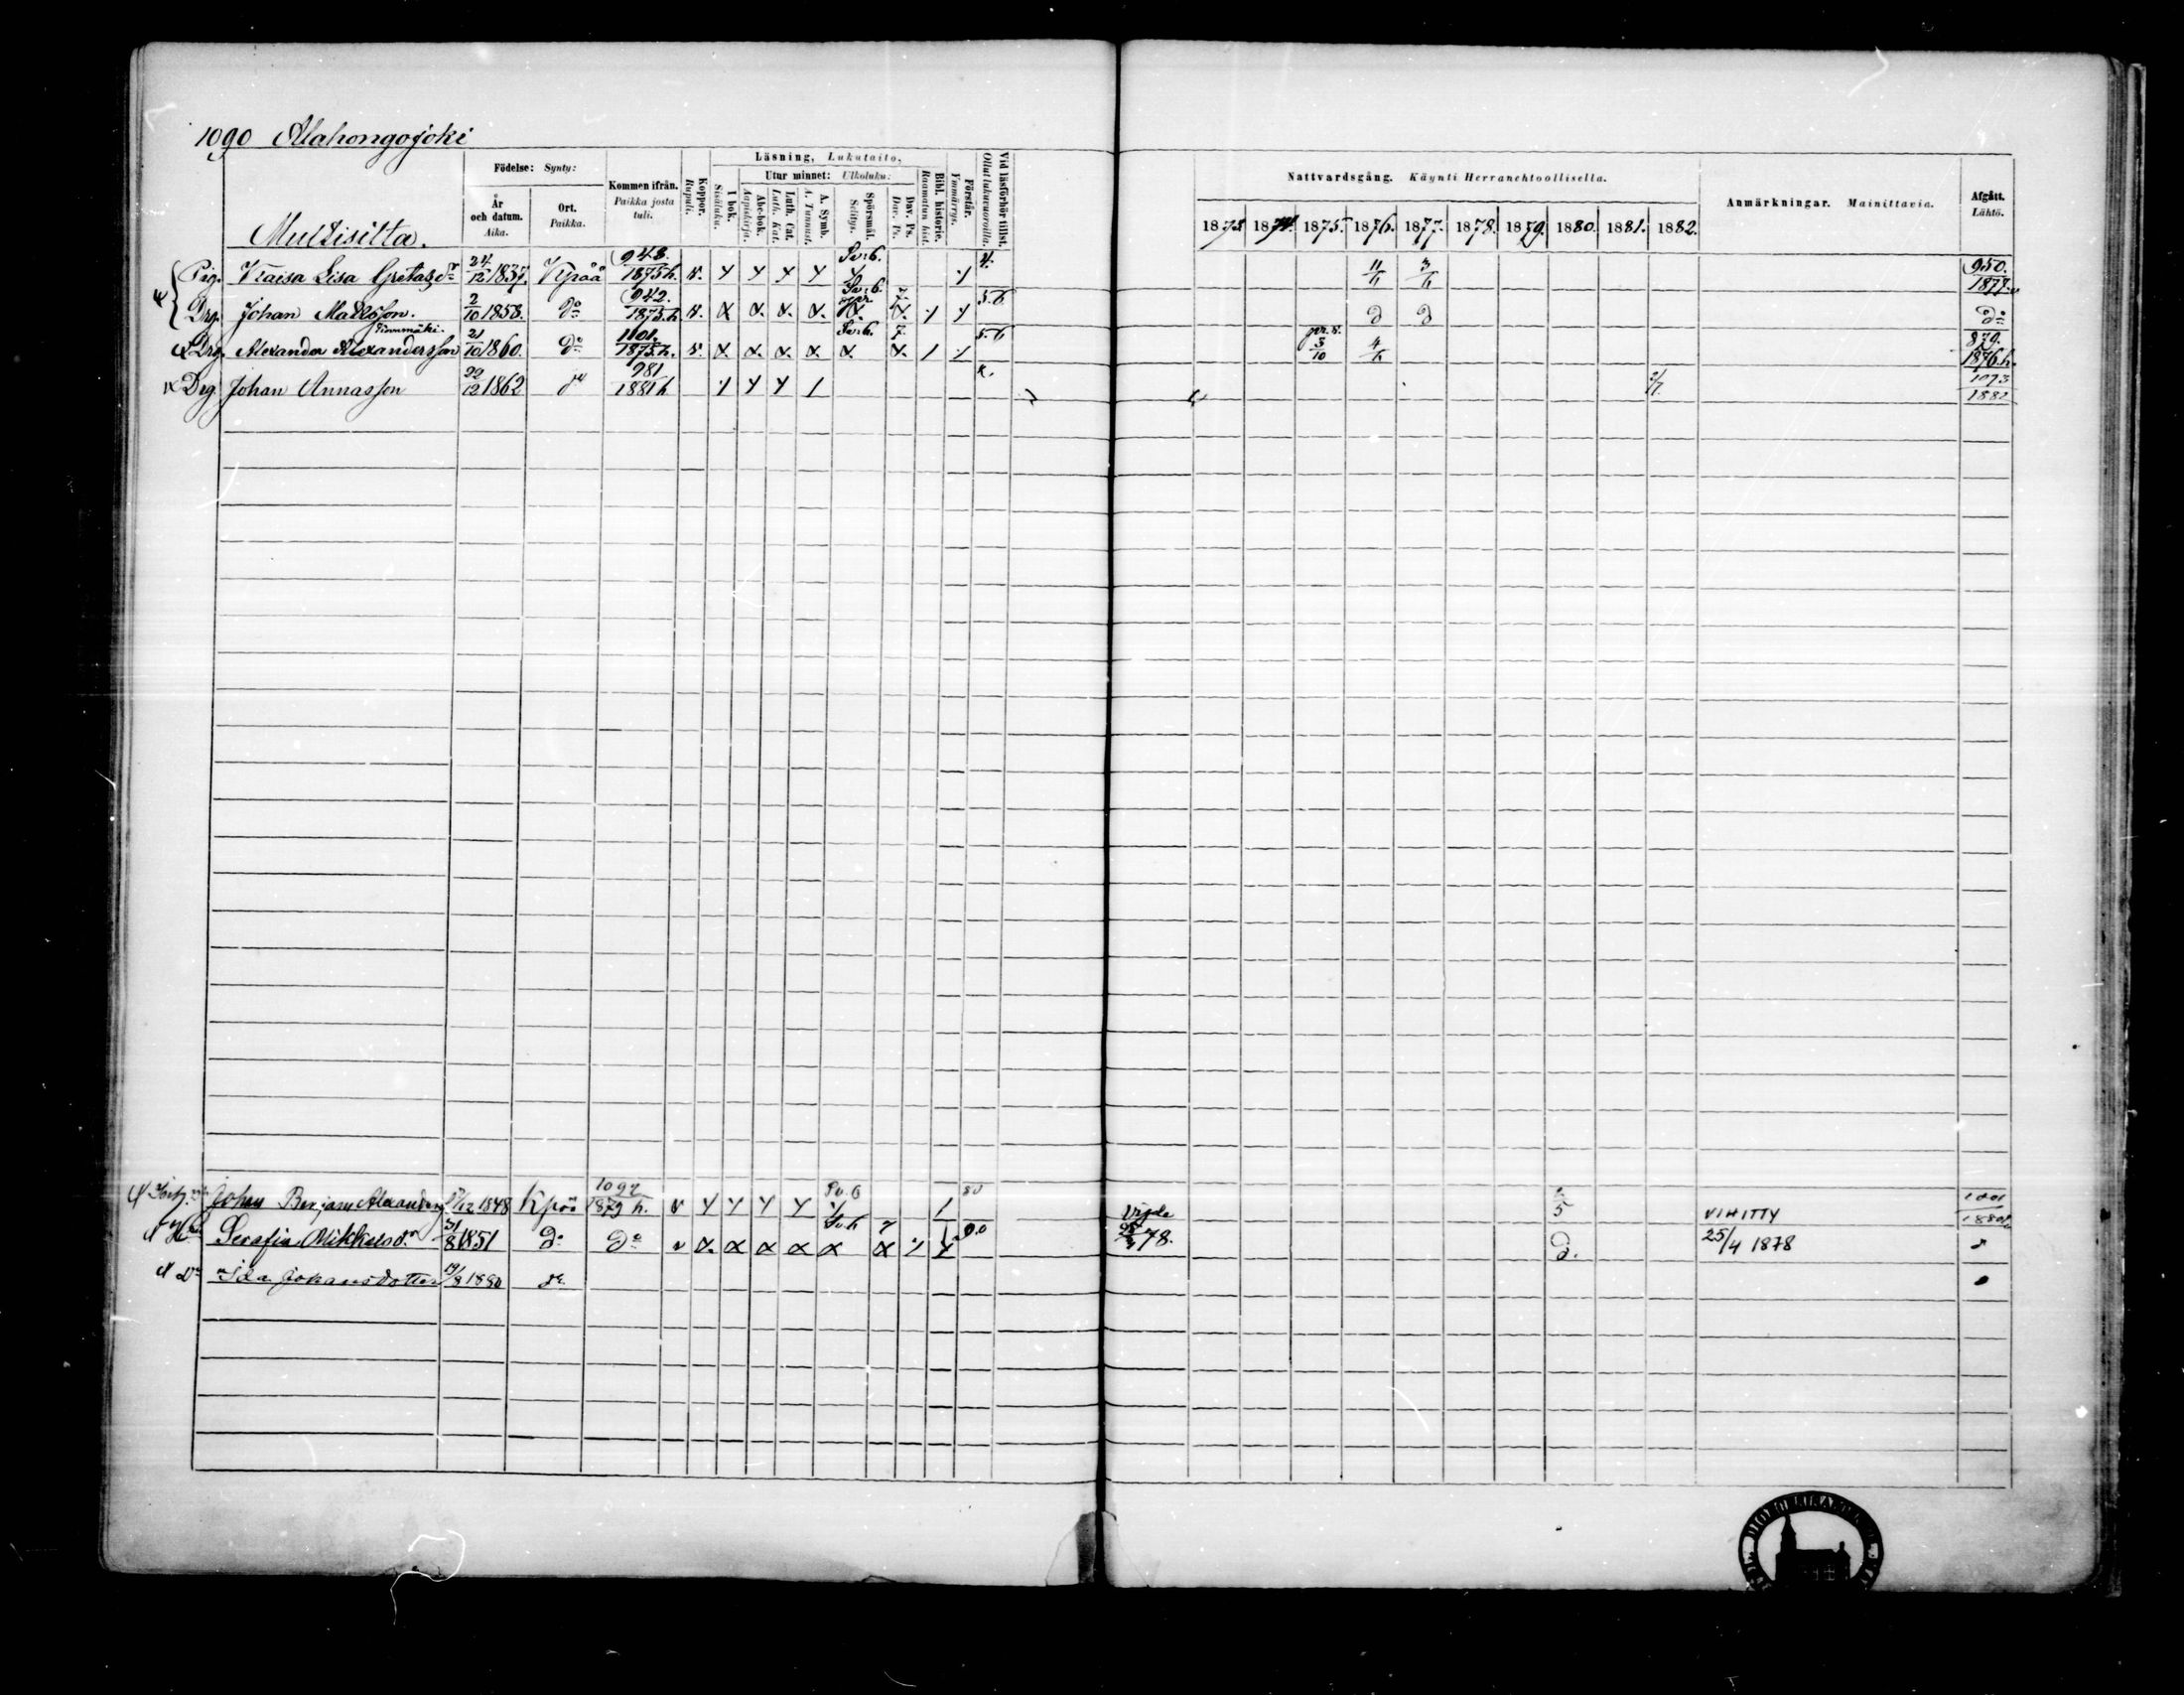 1090 Alahongojoki
Födelse: Synty:
Kommen ifrån.
Paikka josta tuli.
Koppor.
Rupuli.
Läsning, Lukutaito.
I bok.
Sisäluku.
Utur minnet: Ulkoluku:
Abc-bok.
Aapiskirja.
Luth. Cat.
Luth. Kat.
A. Symb.
A. Tunnust.
Spörsmål.
Selitys.
Dav. Ps.
Dav. Ps.
Bibl. historie.
Raamatun hist.
Förstår.
Ymmärrys.
Vid läsförhör tillst.
Ollut lukuvuoroilla.
År och datum.
Aika.
Ort.
Paikka.
Nattvardsgång. Käynti Herranehtoollisella.
1873 1874. 1875. 1876. 1877. 1878. 1879. 1880. 1881. 1882.
Anmärkningar. Mainittavia.
Afgått.
Lähtö.
Multisilta.
Pig. Kaisa Lisa Gretasdr 24/12 1837. Kpää 948. 1875 h. v. Sv: 6. 4. 11/6 3/6 950. 1877.
Drg. Johan Mattsson. 2/10 1858. do 942. 1875 h v. Sv: 6. 7. 5.6 d d do
Drg. Alexander Alexandersson 21/10 1860. do 1101. 1875 h. v. Sv: 6. 7. 5.6 3/10 4/6 879. 1876 h.
Drg Johan Annasson 22/12 1862 do 981 1881 h 1093 1882
Johan Benjam Alexanders 12 1848 Kpää 1092 1879 h. v Sv 6 80 5 VIHITTY 1880
Serafia Mikkelsdr 31/8 1851 do do v Sv 6 7 Vigde 25/4 78. d. 25/4 1878
Ida Johansdotter 19/8 1880 do